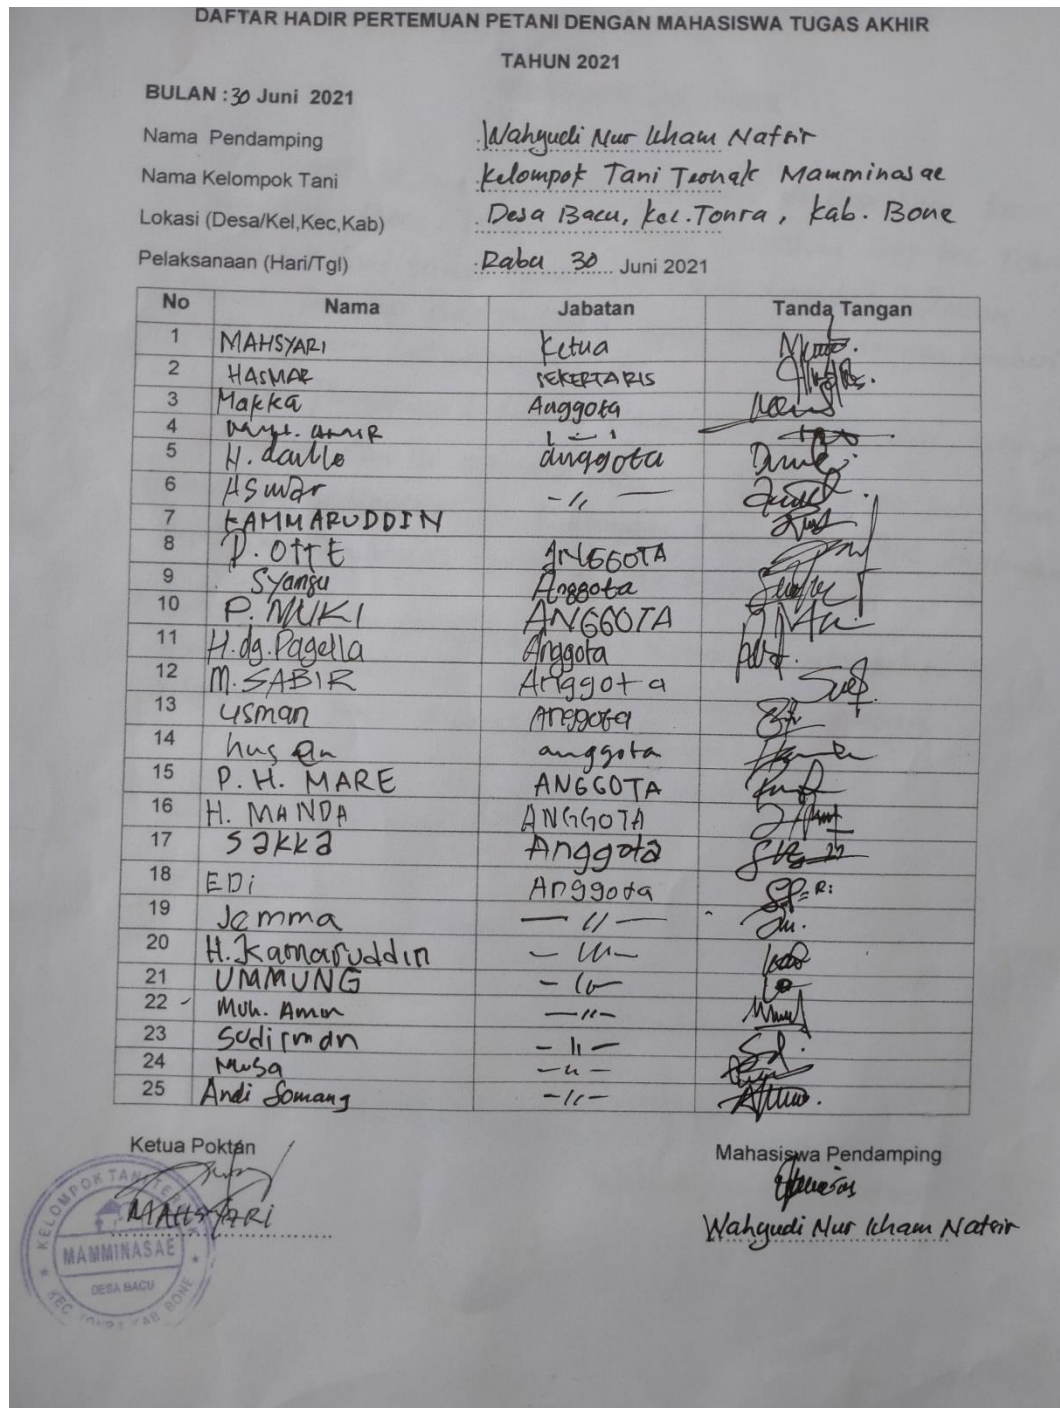 DAFTAR HADIR PERTEMUAN PETANI DENGAN MAHASISWA TUGAS AKHIR
TAHUN 2021
BULAN : 30 Juni 2021
Nama Pendamping : Wahyudi Nur Ilham Natsir
Nama Kelompok Tani : Kelompok Tani Ternak Mamminasae
Lokasi (Desa/Kel,Kec,Kab) : Desa Bacu, Kec. Tonra, Kab. Bone
Pelaksanaan (Hari/Tgl) : Rabu 30 Juni 2021
No Nama Jabatan Tanda Tangan
1 MAHSYARI Ketua
2 HASMAR SEKERTARIS
3 Makka Anggota
4 AMIR
5 H. danggota
6 ASwar - // -
7 KAMMARUDDIN
8 P. OTTE ANGGOTA
9 Syamsu Anggota
10 P. MUKI ANGGOTA
11 H. dg. Pagella Anggota
12 M. SABIR Anggota
13 usman Anggota
14 husen anggota
15 P. H. MARE ANGGOTA
16 H. MANDA ANGGOTA
17 Sakka Anggota
18 EDi Anggota
19 Jemma - // -
20 H. Kamaruddin - // -
21 UMMUNG - // -
22 Muh. Amin - // -
23 Sudirman - // -
24 Musa - // -
25 Andi Somang - // -
Ketua Poktan
Mahasiswa Pendamping
MAHSYARI
Wahyudi Nur Ilham Natsir
KELOMPOK TANI TERNAK
MAMMINASAE
DESA BACU
KEC. TONRA KAB BONE